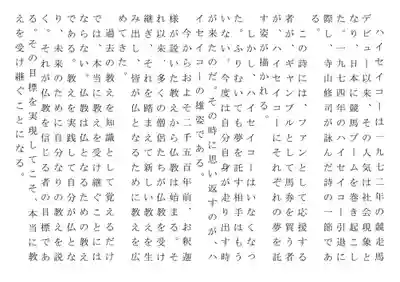 ハイセイコーは一九七二年の競走馬
デビュー以来、その人気は社会現象と
なり、日本に競馬ブームを巻き起こし
た。一九七四年のハイセイコー引退に
際し、寺山修司が詠んだ詩の一節であ
る。
この詩には、ファンとして応援する
者が、ギャンブルとして馬券を買う者
が、ハイセイコーにそれぞれの夢を託
す姿が描かれる。
しかし、ハイセイコーはいなくなっ
た。ふりむいても夢を託す相手はもう
いない。今度は自分自身が走り出す時
が来たのだ。その時に思い返すのが、ハ
イセイコーの雄姿である。
今からおよそ二千五百年前、お釈迦
様が説いた教えから仏教は始まる。そ
れ以来、多くの僧侶たちが仏教を受け
継ぎ、それを踏まえて新しい教えを生
み出し、皆が仏となるための教えを広
めてきた。
過去の教えを知識として覚えるだけ
では、本当に教えを受け継ぐことには
ならない。教えを実践して自分が仏とな
り、未来のために自分なりの教えを説
く。それが仏教を信じる者の目標であ
る。その目標を実現してこそ、本当に教
えを受け継ぐことになる。